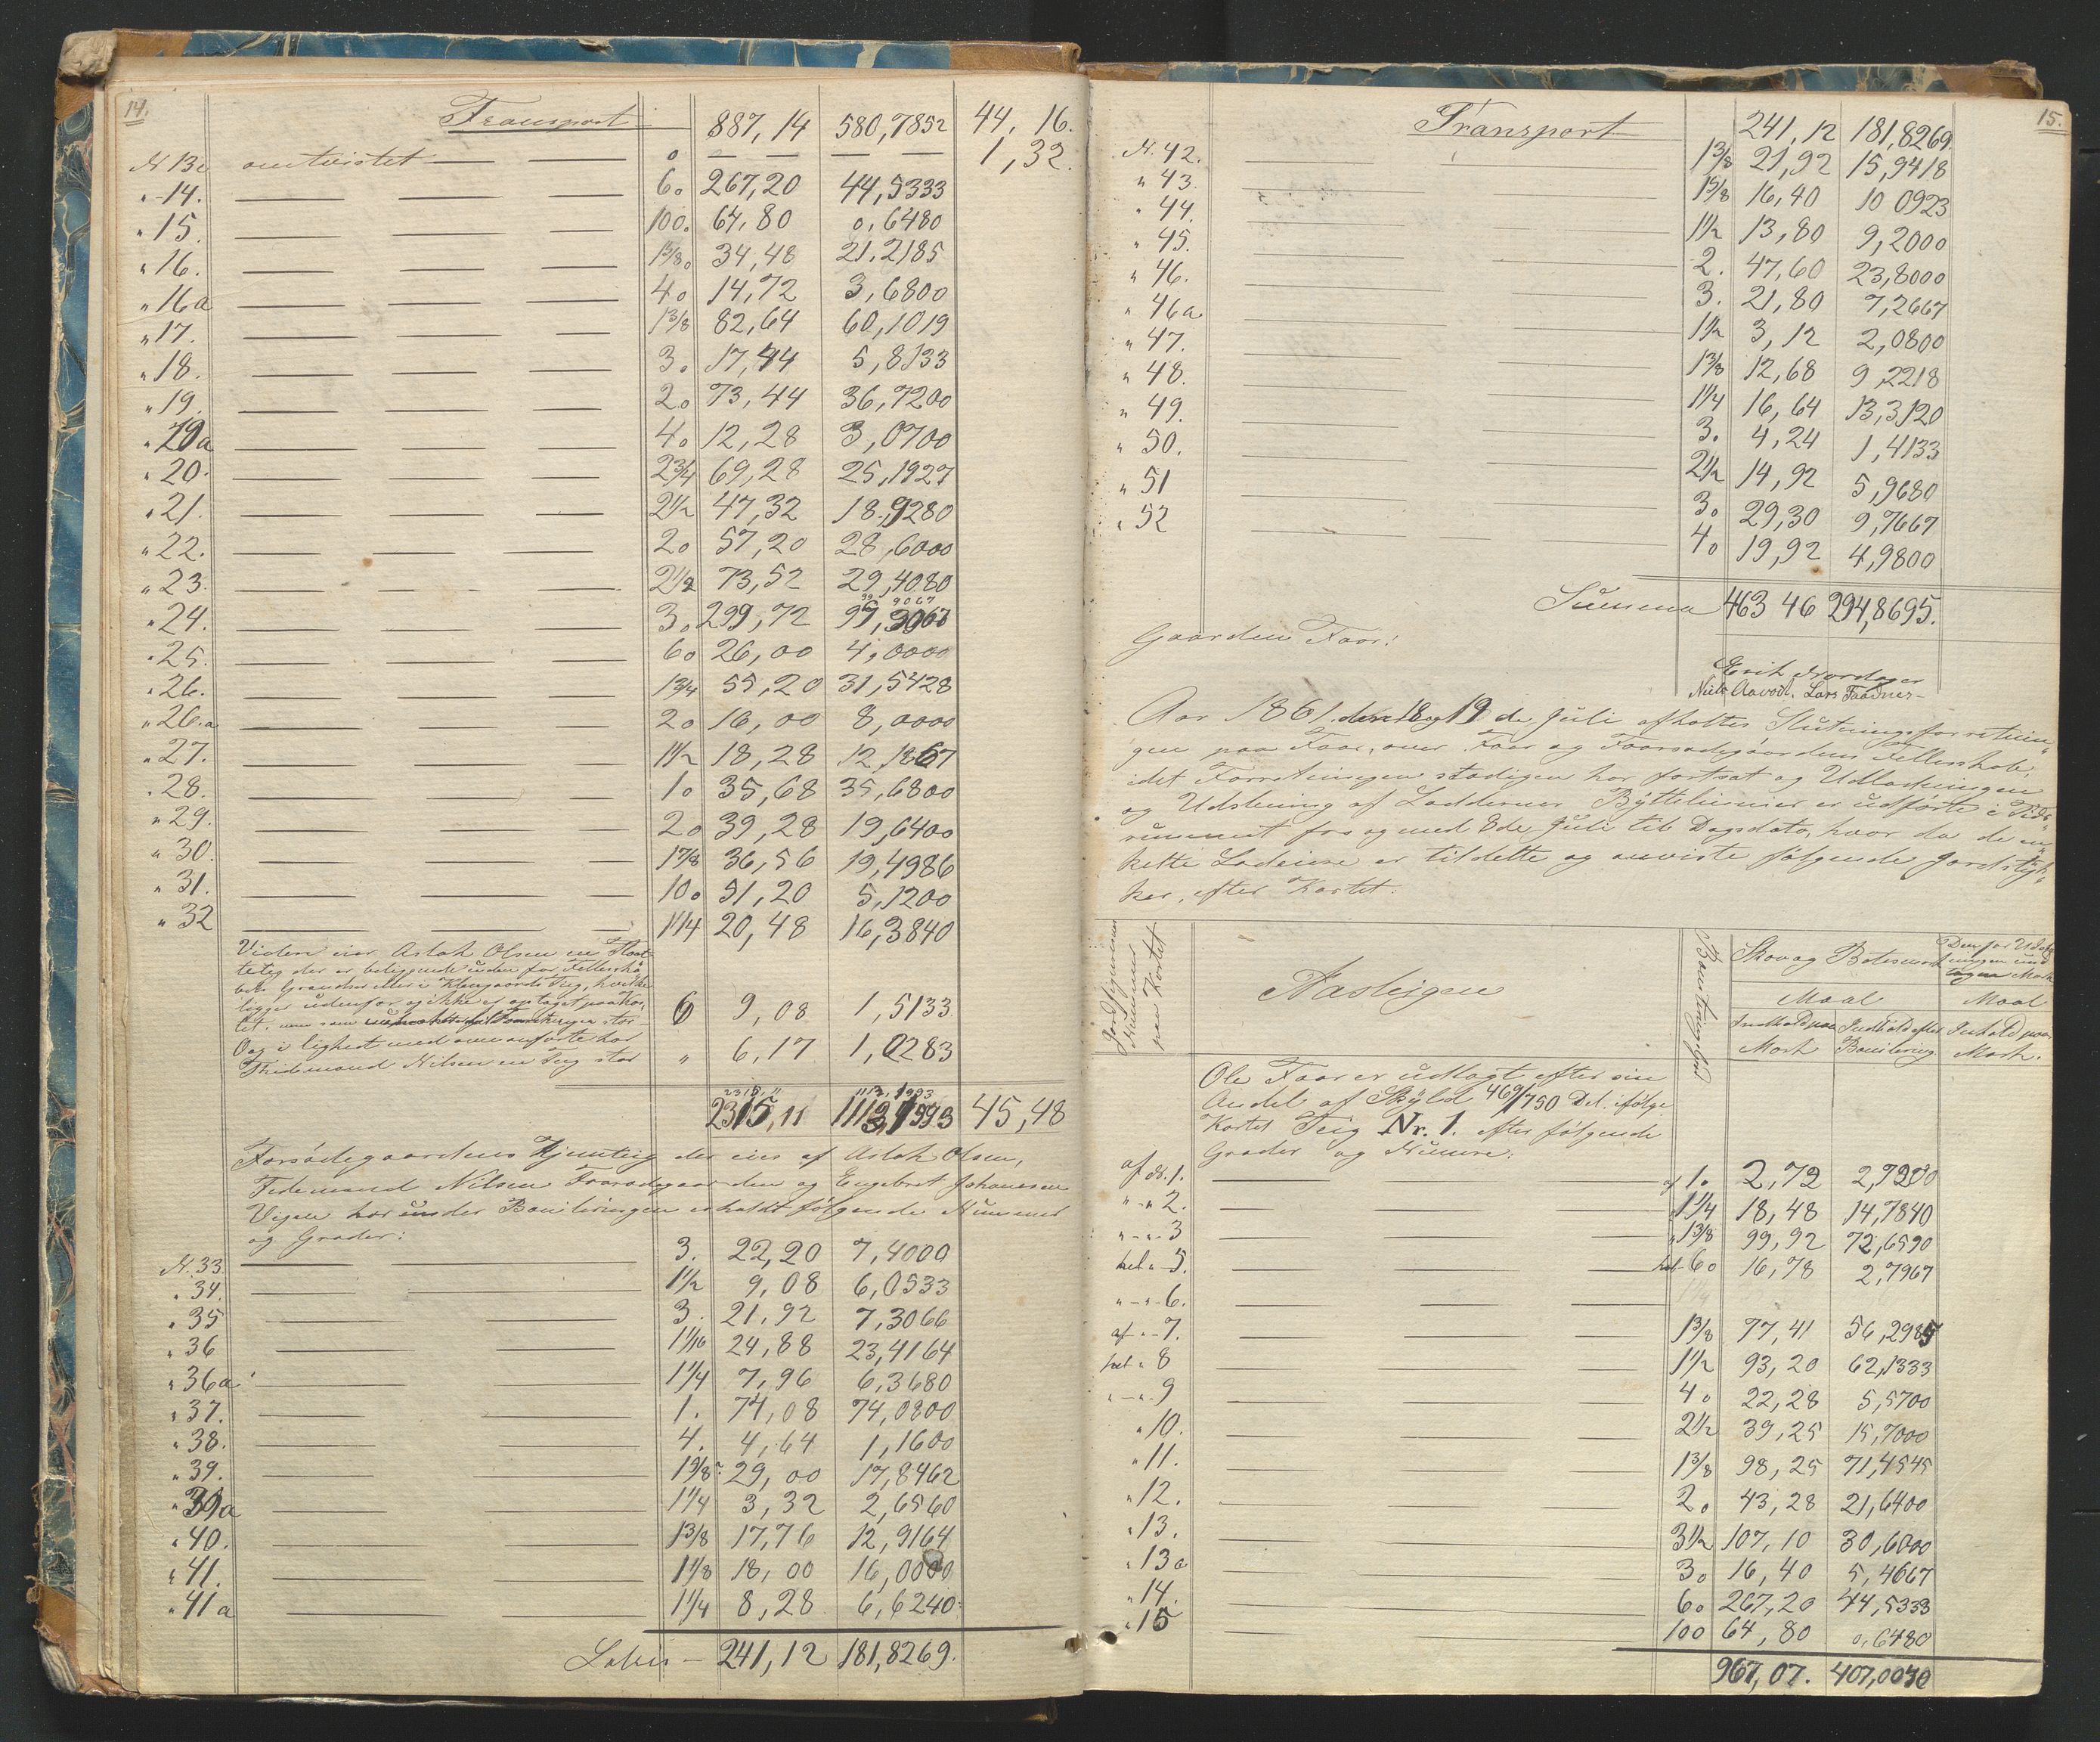 14.
Transport 887,14 580,7852 44,16.
N 13c omtvistet 0 — — — — 1,32.
" 14. 6. 267,20 44,5333
" 15. 100. 64,80 0,6480
" 16. 1 5/8. 34,48 21,2185
" 16a 4. 14,72 3,6800
" 17. 1 3/8 82,64 60,1019
" 18. 3. 17,44 5,8133
" 19. 2. 73,44 36,7200
" 19a 4. 12,28 3,0700
" 20. 2 3/4 69,28 25,1927
" 21. 2 1/2 47,32 18,9280
" 22. 2. 57,20 28,6000
" 23. 2 1/2 73,52 29,4080
" 24. 3. 299,72 99,9067
" 25. 6. 26,00 4,0000
" 26. 1 3/4 55,20 31,5428
" 26.a 2. 16,00 8,0000
" 27. 1 1/2 18,28 12,1867
" 28. 1. 35,68 35,6800
" 29. 2. 39,28 19,6400
" 30. 1 7/8 36,56 19,4986
" 31. 10. 51,20 5,1200
" 32 1 1/4 20,48 16,3840
Videre eier Aslak Olsen en
teteg der er beliggende uden for Fellesska
bets Grændse eller i Klevgaards Teig, hvilke
ligge udenfor og ikke er optaget paa Kor,
tet, men som stor 6 9,08 1,5133
Og i lighed med ovenanførte har
Thidemand Nilsen en Teig stor " 6,17 1,0283
2315,11 1113,1993
2315,11 1113,1993 45,48
Forsødegaardens Hjemteig der eies af Aslak Olsen,
Tidemand Nilsen Faarødegaarden og Engebret Johannsen
Vigen har under Boniteringen erholdt følgende Nummer
og Grader:
N. 33 3. 22,20 7,4000
" 34. 1 1/2 9,08 6,0533
" 35 3. 21,92 7,3066
" 36 1 1/16 24,88 23,4164
" 36a 1 1/4 7,96 6,3680
" 37. 1. 74,08 74,0800
" 38. 4. 4,64 1,1600
" 39. 1 5/8 29,00 17,8462
" 39a 1 1/4 3,32 2,6560
" 40. 1 3/8 17,76 12,9164
" 41. 1 1/8 18,00 16,0000
" 41a 1 1/4 8,28 6,6240
Lateris — 241,12 181,8269.
15.
Transport 241,12 181,8269.
N. 42. 1 3/8 21,92 15,9418
" 43. 1 5/8 16,40 10 0923
" 44. 1 1/2 13,80 9,2000
" 45. 2. 47,60 23,8000
" 46. 3. 21,80 7,2667
" 46a 1 1/2 3,12 2,0800
" 47. 1 3/8 12,68 9,2218
" 48. 1 1/4 16,64 13,3120
" 49. 3. 4,24 1,4133
" 50. 2 1/2 14,92 5,9680
" 51 3. 29,30 9,7667
" 52 4. 19,92 4,9800
Summa 463 46 294,8695.
Gaarden Faar:
Niels Aavod. Lars Faadnes
Aar 1861. den 18 og 19 de Juli afholtes Slutningsforretnin
gen paa Faar, over Faar og Faarsødegaardens Fellesskab,
idet Forretningen stadigen har fortsat og Udlodningen
og Udstikning af Loddernes Byttelinnier er udførte i Tids,
rummet fra og med 8de Juli til Dagsdato, hvor da de en,
kelte Lodeiere er tildelte og anviste følgende Jordstyk,
ker, efter Kartet:
Jordfigurernes Nummer paa Kortet
Aasteigen
Boniteringsgrad
Skov og Beitesmark
Maal
Indhold paa Mark
Indhold efter Bonitering
Den for Udskiftningen und
tagen Mark
Maal
Inhold paa Mark.
Ole Faar er udlagt efter sin
Andel af Skyld 469/750 Del. ifølge
Kartet Teig Nr. 1. efter følgende
Grader og Numre:
af N. 1. af 1. 2,72 2,7200
" - " 2. " 1 1/4 18,48 14,7840
" - " 3 " 1 3/8 99,92 72,6590
hel " 5. hel 6. 16,78 2,7967
" - " 6.
af " 7. 1 3/8 77,41 56,2985
hel " 8 1 1/2 93,20 62,1333
" - " 9 4. 22,28 5,5700
" 10. 2 1/2 39,25 15,7000
" 11. 1 3/8 98,25 71,4545
" 12. 2. 43,28 21,6400
" 13. 3 1/2 107,10 30,6000
" 13a 3. 16,40 5,4667
" 14. 6. 267,20 44,5333
" 15 100 64,80 0,6480
967,07. 407,0040